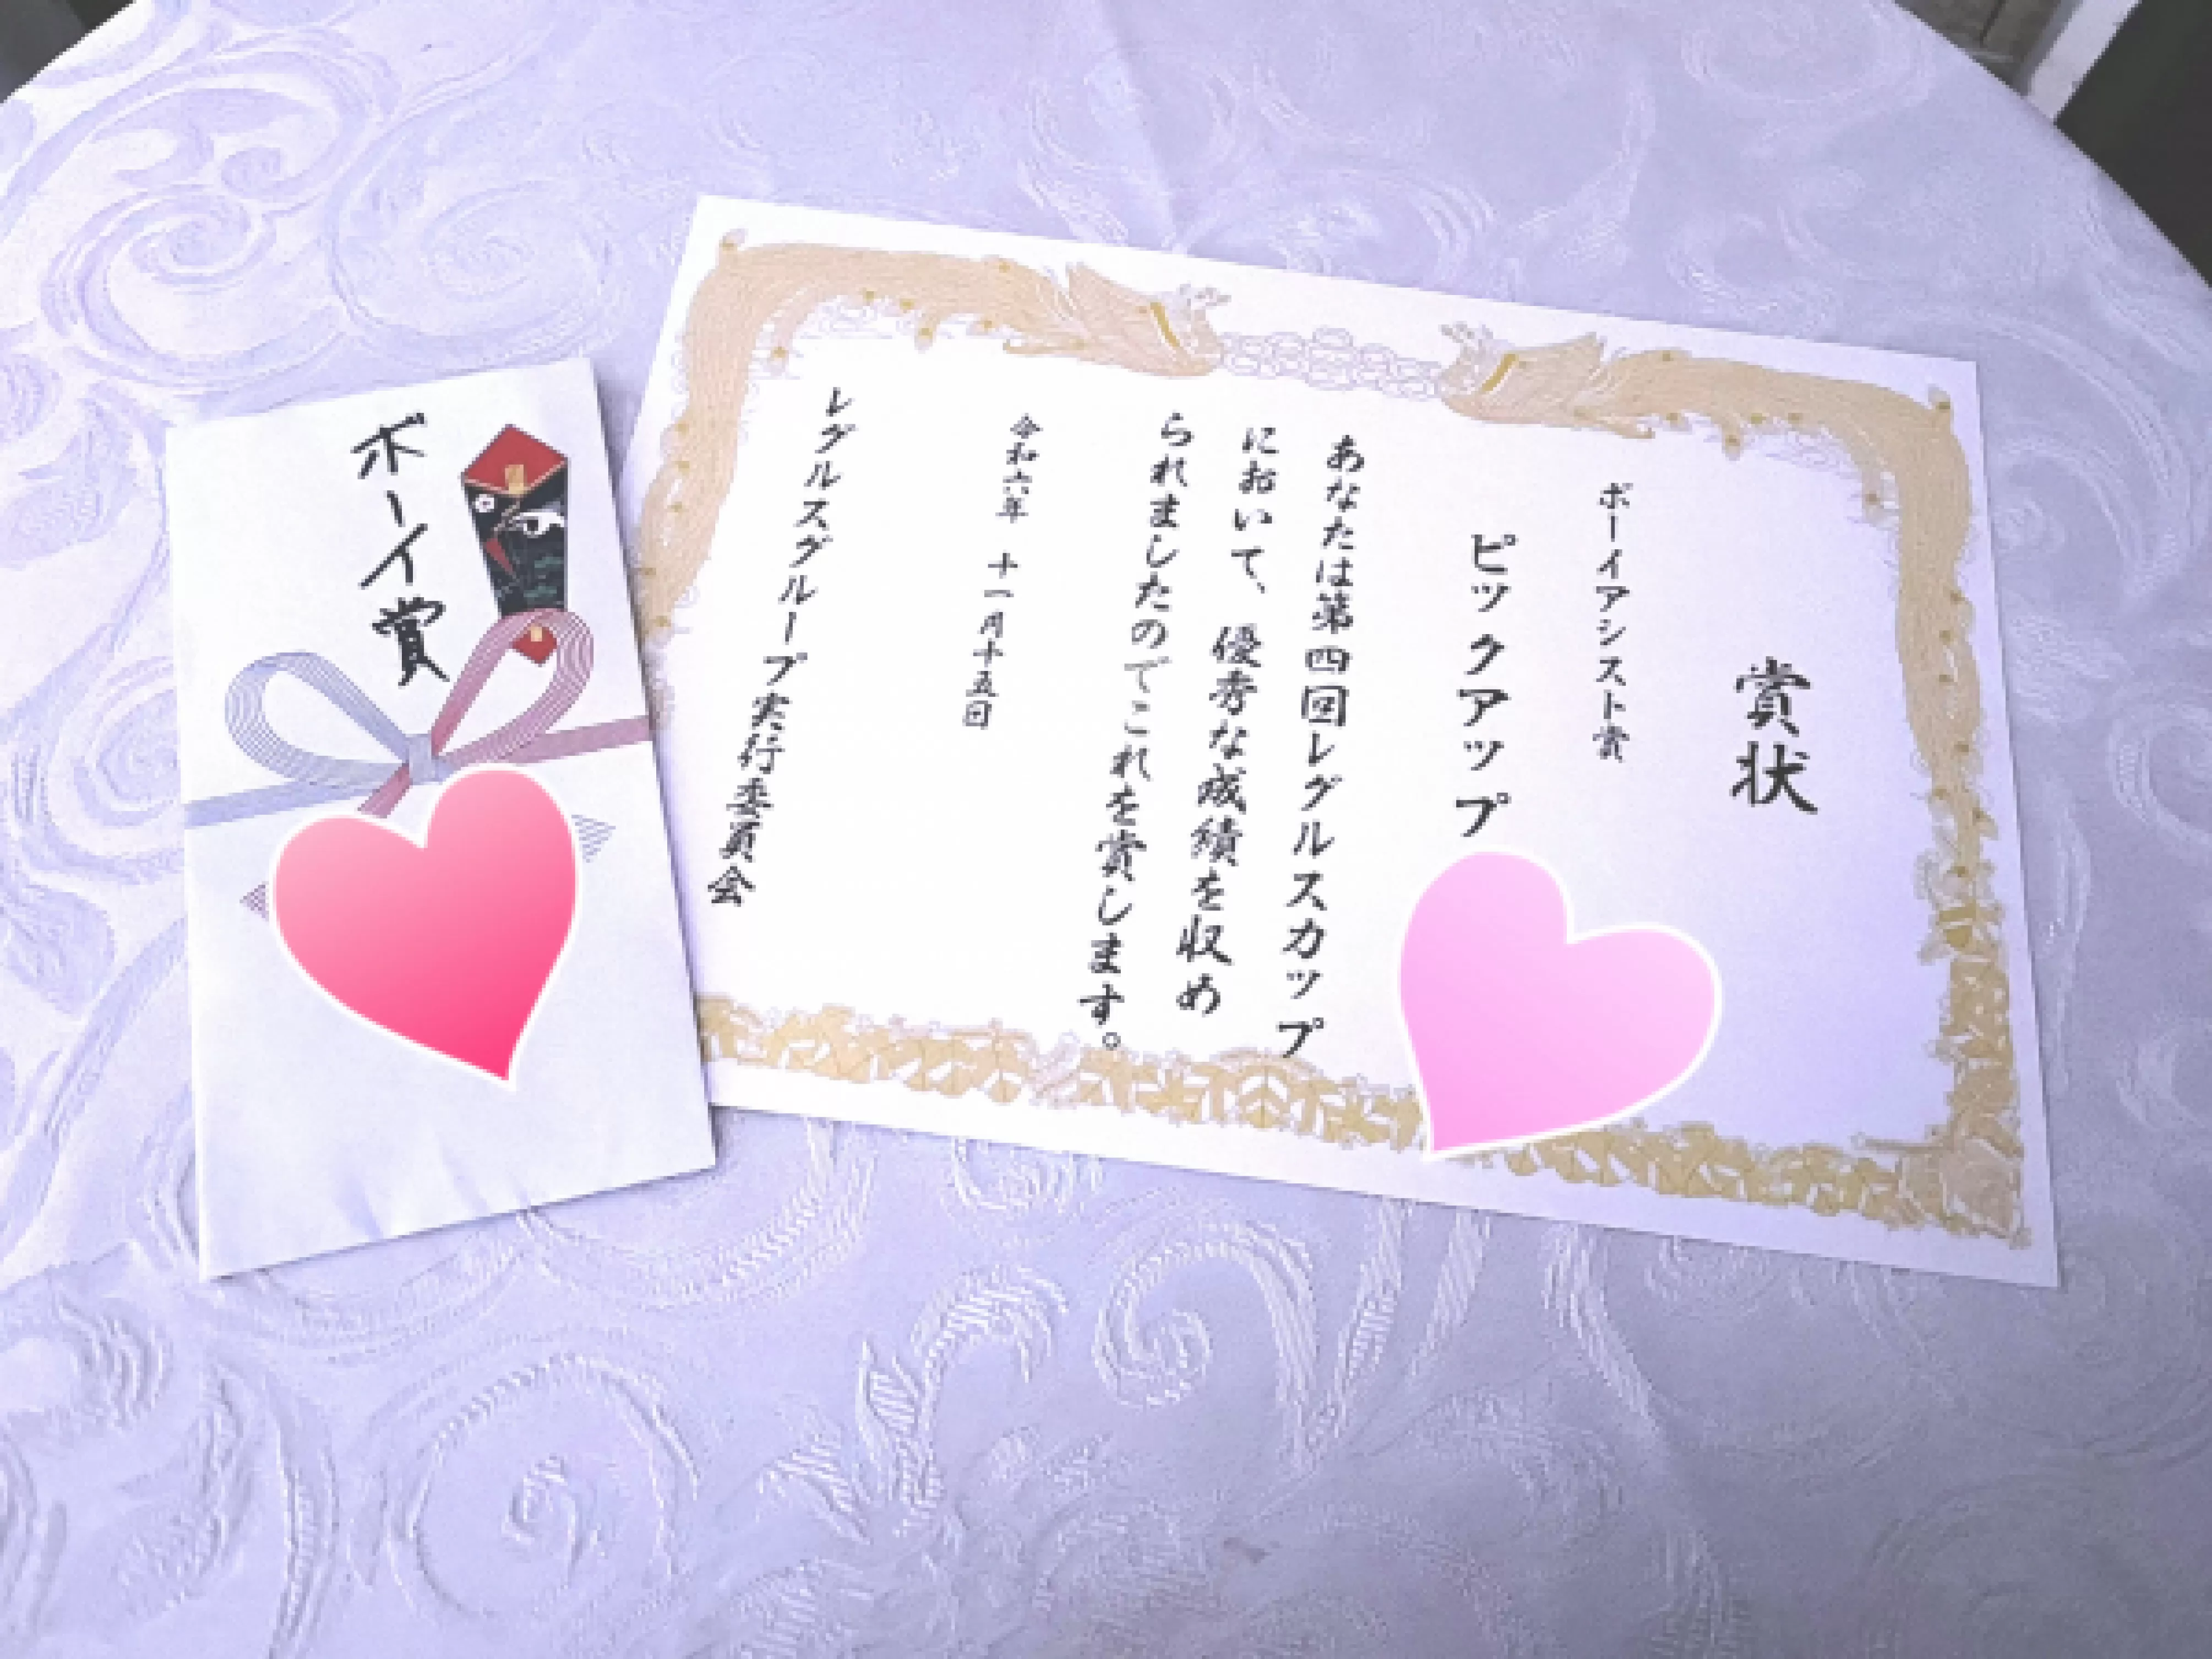 ボーイ賞
賞状
ボーイアシスト賞
ピックアップ
あなたは第四回レグルスカップ
において、優秀な成績を収め
られましたのでこれを賞します。
令和六年 十一月十五日
レグルスグループ実行委員会